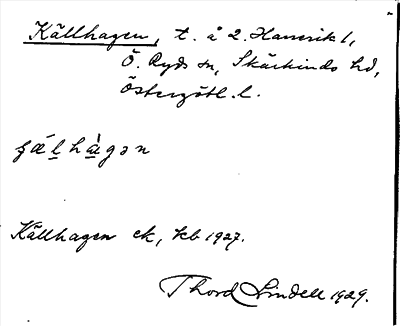 Källhagen, t. å 2. Hamrik 1,
Ö. Ryds sn, Skärkinds hd,
Östergötl. l.
Källhagen ek, kb 1927.
Thord Lindell 1929.